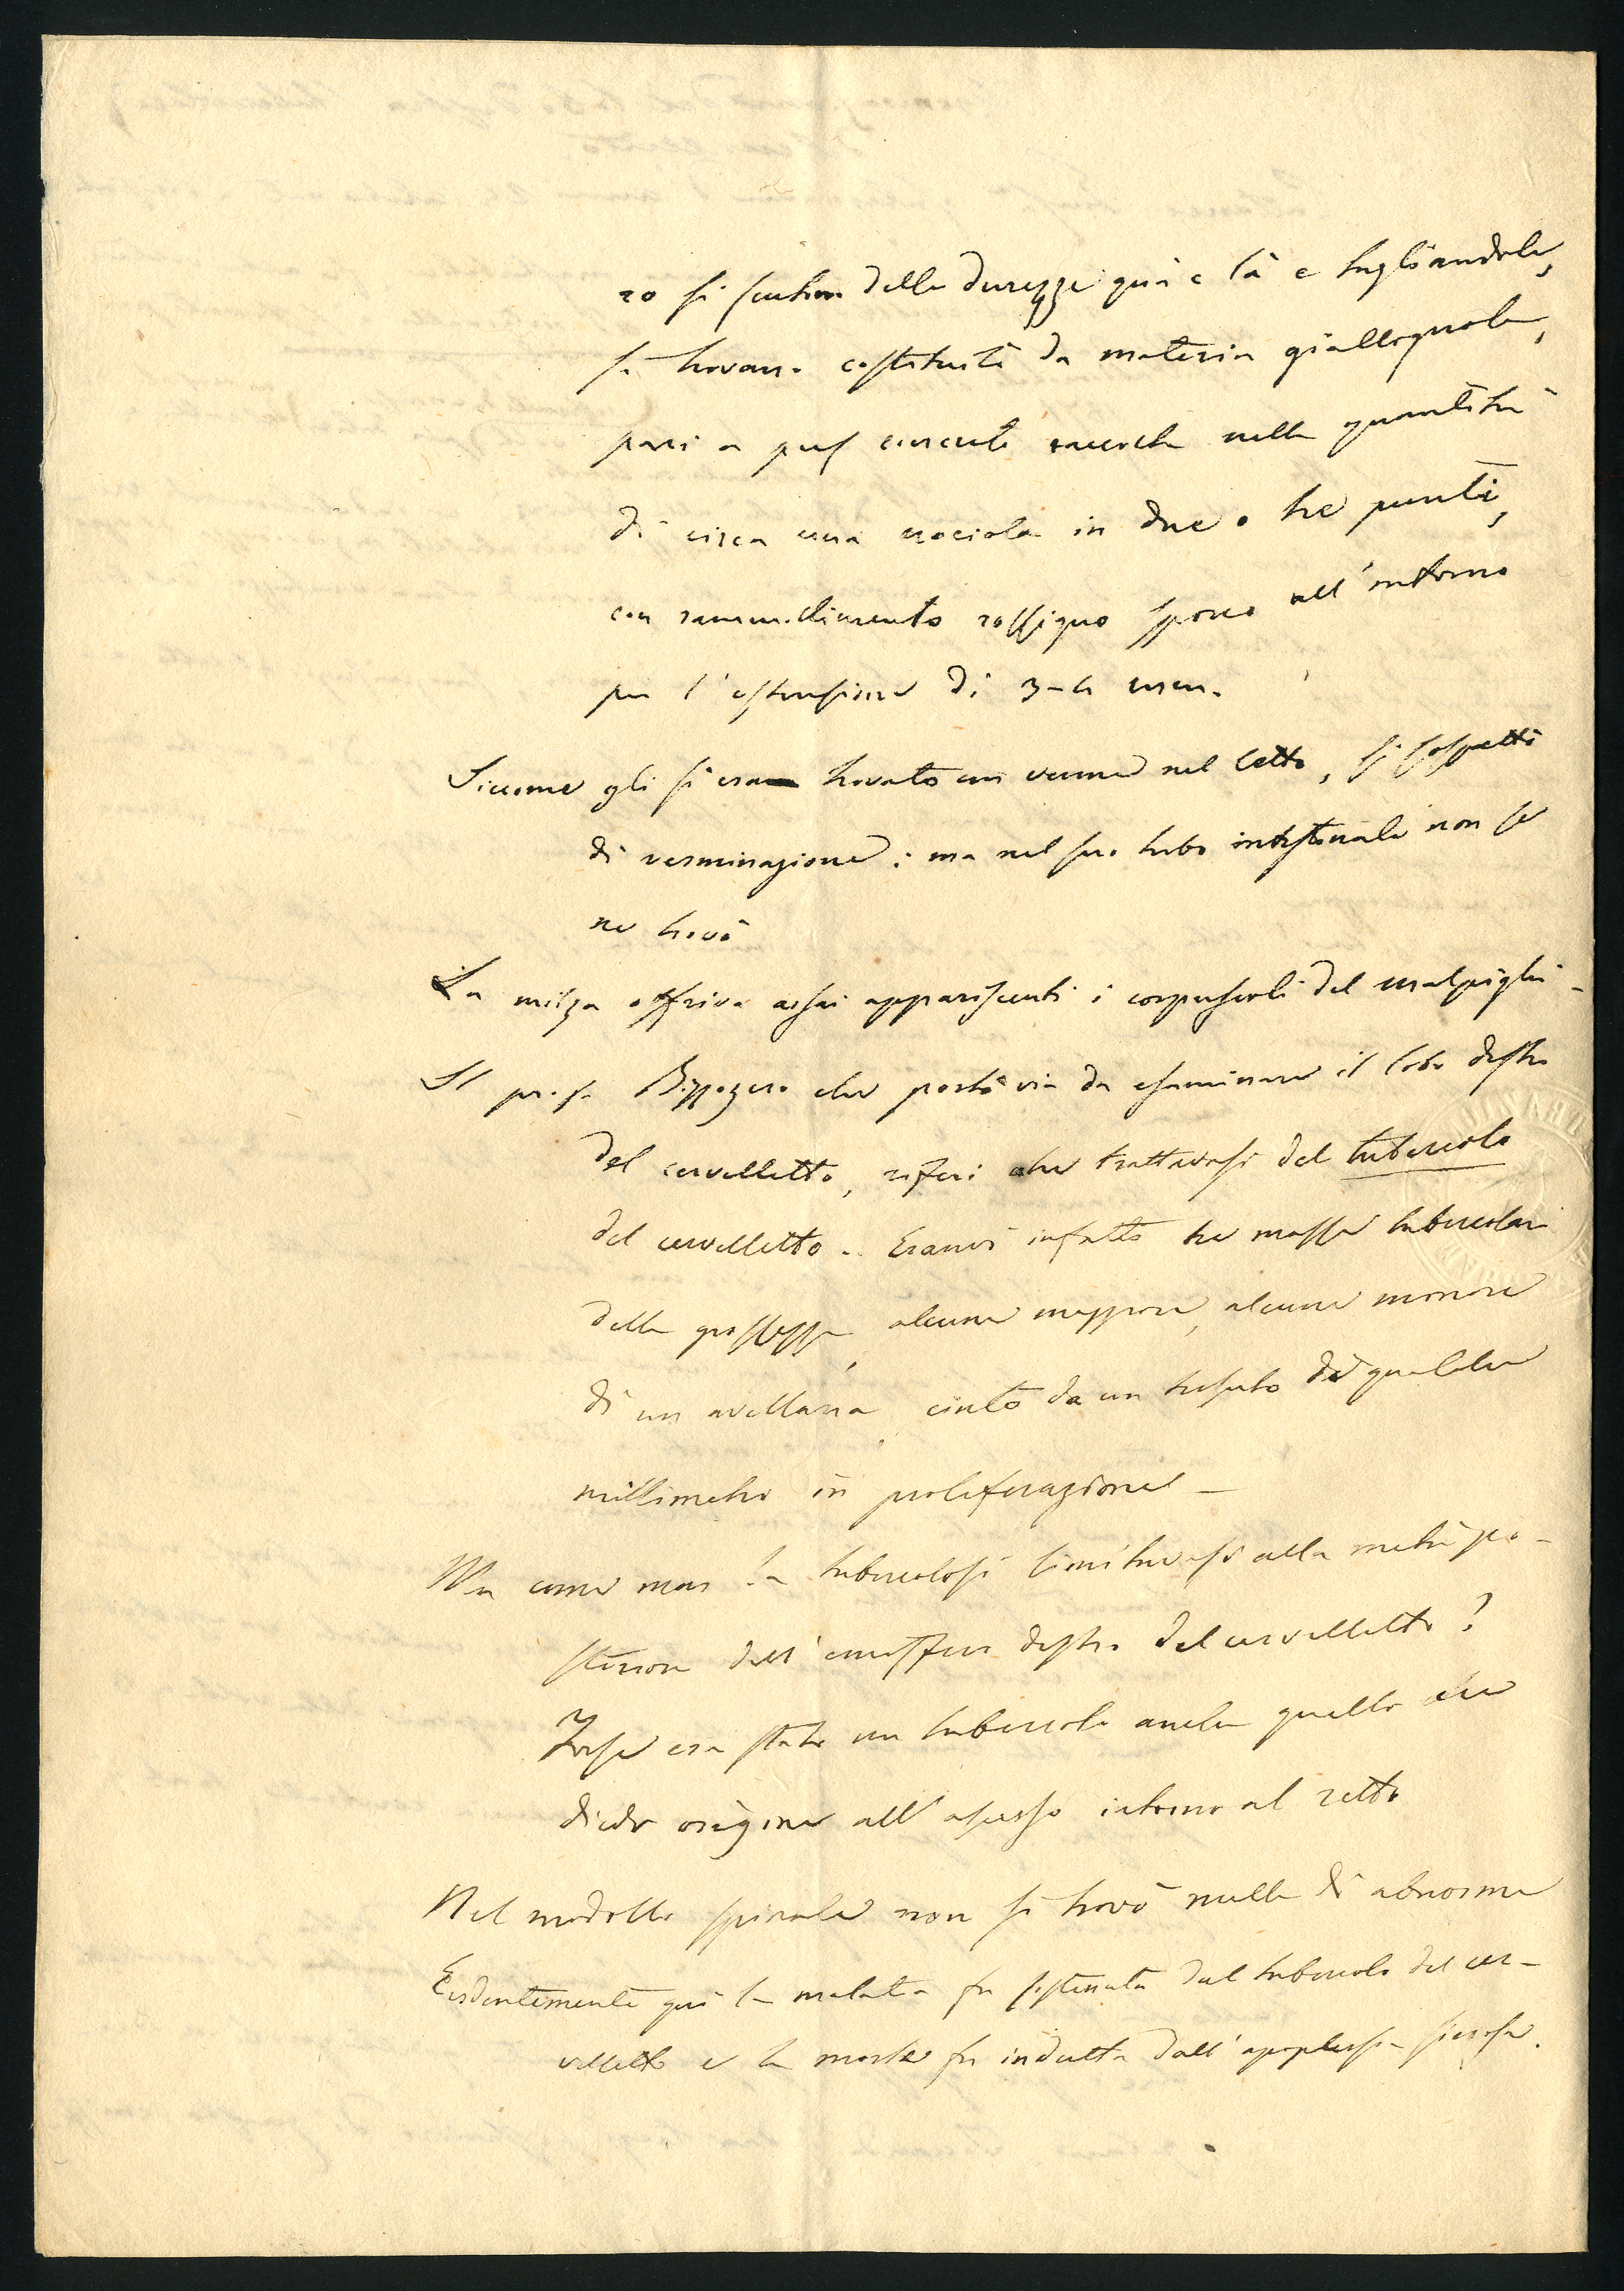 ro si sentivan delle durezze quà e là e tagliandole,
si trovano costituite da materia giallognola,
pari a pus cruento raccolta nella quantità
di circa una nocciola in due o tre punti,
con rammollimento rossigno sporco all'intorno
per l'estensione di 3-4 mm.
Siccome gli si era trovato un verme nel letto, si sospettò
di verminazione: ma nel suo tubo intestinale non se
ne trovò
La milza offriva assai appariscenti i corpuscoli del malpighi-
Il profr Bizzozero che portò via da esaminare il lobo destro
del cervelletto, riferì che trattavasi del tubercolo
del cervelletto. Eranvi infatti tre masse tubercolari
della grossezza, alcune maggiore, alcune minore
di un avellana, cinto da un tessuto di qualche
millimetro in proliferazione -
Ma come mai la tubercolosi limitavasi alla metà po-
steriore dell'emisfero destro del cervelletto?
Forse era stato un tubercolo anche quello che
diede origine all'ascesso intorno al retto
Nel midollo spinale non si trovò nulla di abnorme
Evidentemente quì la malatia fu sostenuta dal tubercolo del cer-
velletto e la morte fu indotta dall'apoplessia sierosa.